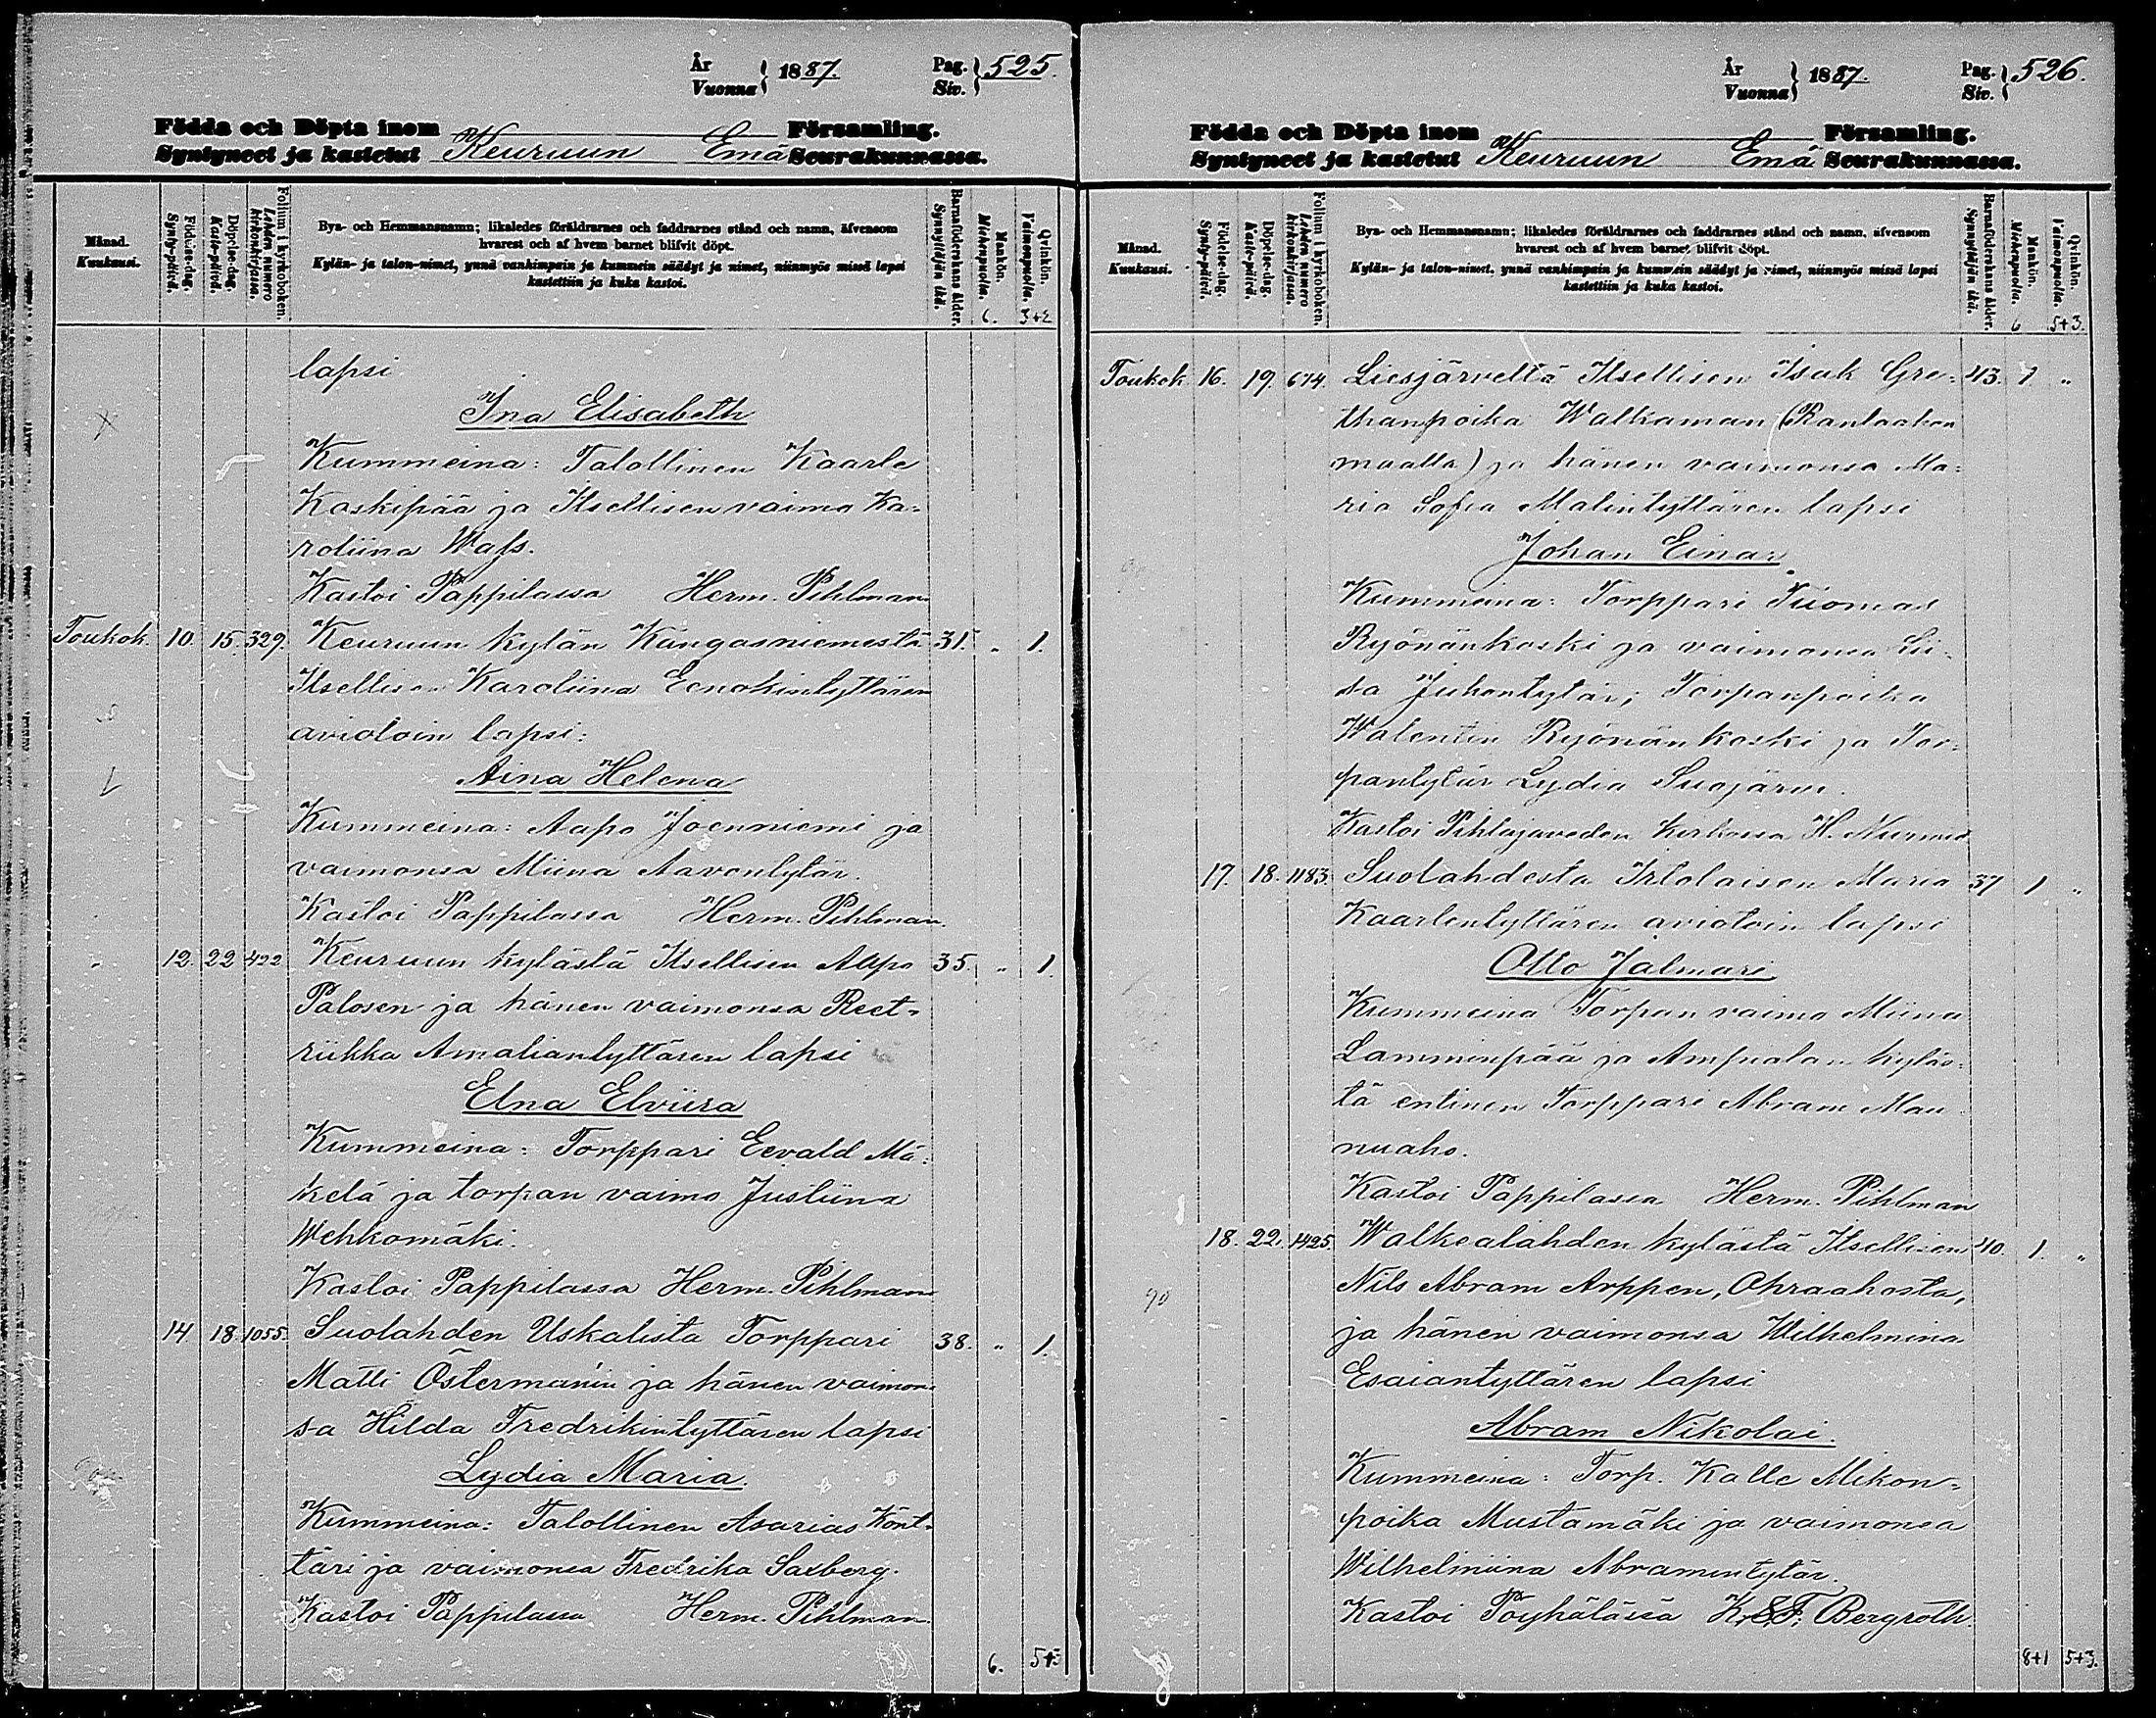 År
Vuonna } 1887.
Pag.
Siv. } 525.
Födda och Döpta inom Församling.
Syntyneet ja kastetut Keuruun Emä Seurakunnassa.
Månad.
Kuukausi.
Födelse-dag.
Synty-päivä.
Döpelse-dag.
Kaste-päivä.
Folium i kyrkoboken.
Lehden numero kirkonkirjassa.
Bya- och Hemmansnamn; likaledes föräldrarnes och faddrarnes stånd och namn, äfvensom
hvarest och af hvem barnet blifvit döpt.
Kylän- ja talon-nimet, ynnä vanhimpain ja kummein säädyt ja nimet, niinmyös missä lapsi
kastettiin ja kuka kastoi.
Barnaföderskans ålder.
Synnyttäjän ikä.
Mankön.
Miehenpuolia.
Qvinkön.
Vaimonpuolia.
6. 5+2
lapsi
Ina Elisabeth
Kummeina: Talollinen Kaarle
Koskipää ja Itsellisen vaimo Ka=
roliina Wass.
Kastoi Pappilassa Herm. Pihlman
Toukok. 10. 15. 329. Keuruun kylän Kangasniemestä 31. " 1.
Itsellisen Karoliina Eenokintyttären
aviotoin lapsi:
Aina Helena
Kummeina: Aapo Joenniemi ja
vaimonsa Miina Aavontytär.
Kastoi Pappilassa Herm. Pihlman.
" 12. 22 422 Keuruun kylästä Itsellisen Aapo 35. " 1.
Palosen ja hänen vaimonsa Reet=
riikka Amaliantyttären lapsi
Elna Elviira
Kummeina: Torppari Eevald Mä=
kelä ja torpan vaimo Justiina
Wehkomäki.
Kastoi Pappilassa Herm. Pihlman
14 18. 1055. Suolahden Uskalista Torppari 38. " 1.
Matti Östermanin ja hänen vaimon=
sa Hilda Fredrikintyttären lapsi
Lydia Maria.
Kummeina: Talollinen Asarias Könt=
täri ja vaimonsa Fredrika Saxberg.
Kastoi Pappilassa Herm. Pihlman.
6. 5+3
År
Vuonna } 1887.
Pag.
Siv. } 526.
Födda och Döpta inom Församling.
Syntyneet ja kastetut Keuruun Emä Seurakunnassa.
Månad.
Kuukausi.
Födelse-dag.
Synty-päivä.
Döpelse-dag.
Kaste-päivä.
Folium i kyrkoboken.
Lehden numero kirkonkirjassa.
Bya- och Hemmansnamn; likaledes föräldrarnes och faddrarnes stånd och namn, äfvensom
hvarest och af hvem barnet blifvit döpt.
Kylän- ja talon-nimet, ynnä vanhimpain ja kummein säädyt ja nimet, niinmyös missä lapsi
kastettiin ja kuka kastoi.
Barnaföderskans ålder.
Synnyttäjän ikä.
Mankön.
Miehenpuolia.
Qvinkön.
Vaimonpuolia.
6 5+3.
Toukok. 16. 19. 674. Liesjärveltä Itsellisen Isak Gre= 43. 1. "
thanpoika Walkaman (Rantaahon
maalla) ja hänen vaimonsa Ma=
ria Sofia Matintyttären lapsi
Johan Einar.
Kummeina: Torppari Tuomas
Ryönänkoski ja vaimonsa Lii=
sa Juhontytär; Torpanpoika
Walentin Ryönänkoski ja Tor=
pantytär Lydia Suojärvi.
Kastoi Pihlajaveden kirkossa H. Nurmio
17. 18. 1183. Suolahdesta Irtolaisen Maria 37 1 "
Kaarlentyttären aviotoin lapsi
Otto Jalmari
Kummeina Torpan vaimo Miina
Lamminpää ja Ampialan kyläs=
tä entinen Torppari Abram Man
nuaho.
Kastoi Pappilassa Herm. Pihlman
18. 22. 1425. Walkealahden kylästä Itsellisen 40. 1. "
Nils Abram Arppen, Ohraahosta,
ja hänen vaimonsa Wilhelmina
Esaiantyttären lapsi
Abram Nikolai.
Kummeina: Torp. Kalle Mikon=
poika Mustamäki ja vaimonsa
Wilhelmiina Abramintytär.
Kastoi Pöyhälässä K. E. F. Bergroth.
8+1 5+3.